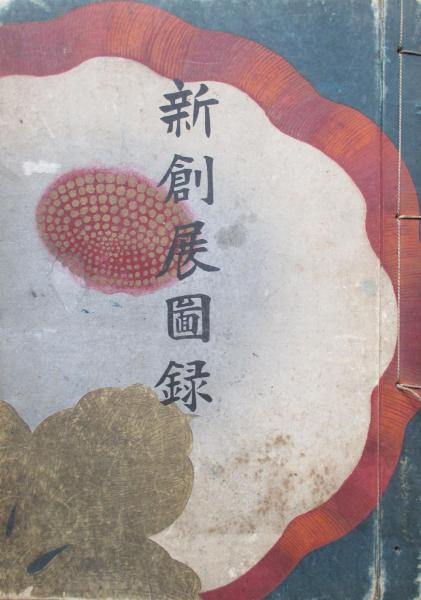 新創展圖録